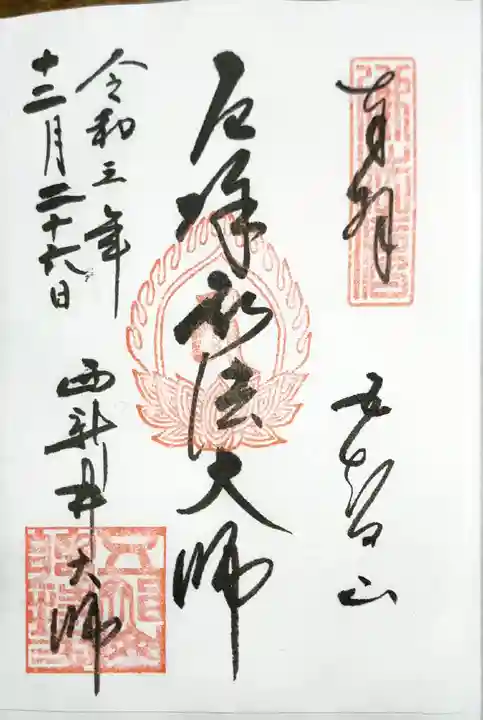 奉拝
五智山
厄除弘法大師
令和三年
十二月二十六日
西新井大師